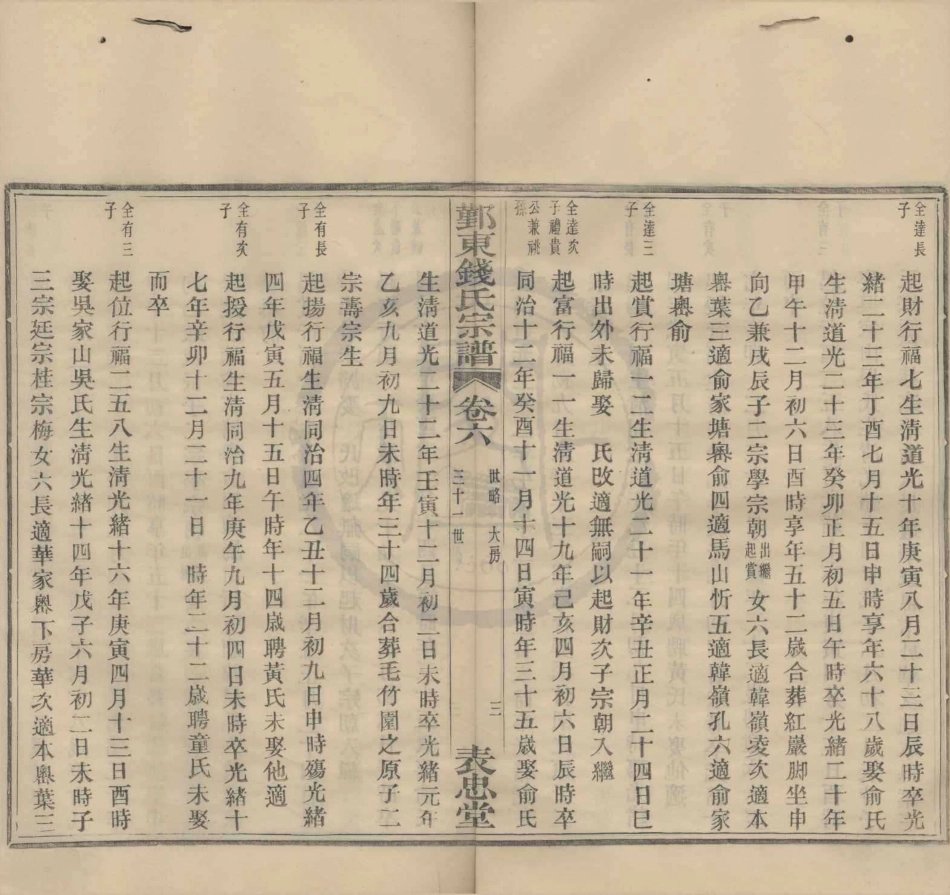 全達長子
起財行福七生淸道光十年庚寅八月二十三日辰時卒光
緒二十三年丁酉七月十五日申時享年六十八歲娶俞氏
生淸道光二十三年癸卯正月初五日午時卒光緒二十年
甲午十二月初六日酉時享年五十二歲合葬紅巖脚坐申
向乙兼戌辰子二宗學宗朝出繼起賞女六長適韓嶺凌次適本
嶴葉三適俞家塘嶴俞四適馬山忻五適韓嶺孔六適俞家
塘嶴俞
全達三子
起賞行福一二生淸道光二十一年辛丑正月二十四日巳
時出外未歸娶 氏改適無嗣以起財次子宗朝入繼
全達次子禮貴公兼祧孫
起富行福一一生淸道光十九年己亥四月初六日辰時卒
同治十二年癸酉十一月十四日寅時年三十五歲娶俞氏
鄞東錢氏宗譜 卷六 世略 大房 三十一世 三 表忠堂
生淸道光二十二年壬寅十二月初二日未時卒光緒元年
乙亥九月初九日未時年三十四歲合葬毛竹園之原子二
宗壽宗生
全有長子
起揚行福生淸同治四年乙丑十二月初九日申時殤光緒
四年戊寅五月十五日午時年十四歲聘黃氏未娶他適
全有次子
起授行福生淸同治九年庚午九月初四日未時卒光緒十
七年辛卯十二月二十一日 時年二十二歲聘童氏未娶
而卒
全有三子
起位行福二五八生淸光緒十六年庚寅四月十三日酉時
娶吳家山吳氏生淸光緒十四年戊子六月初二日未時子
三宗延宗桂宗梅女六長適華家嶴下房華次適本嶴葉三